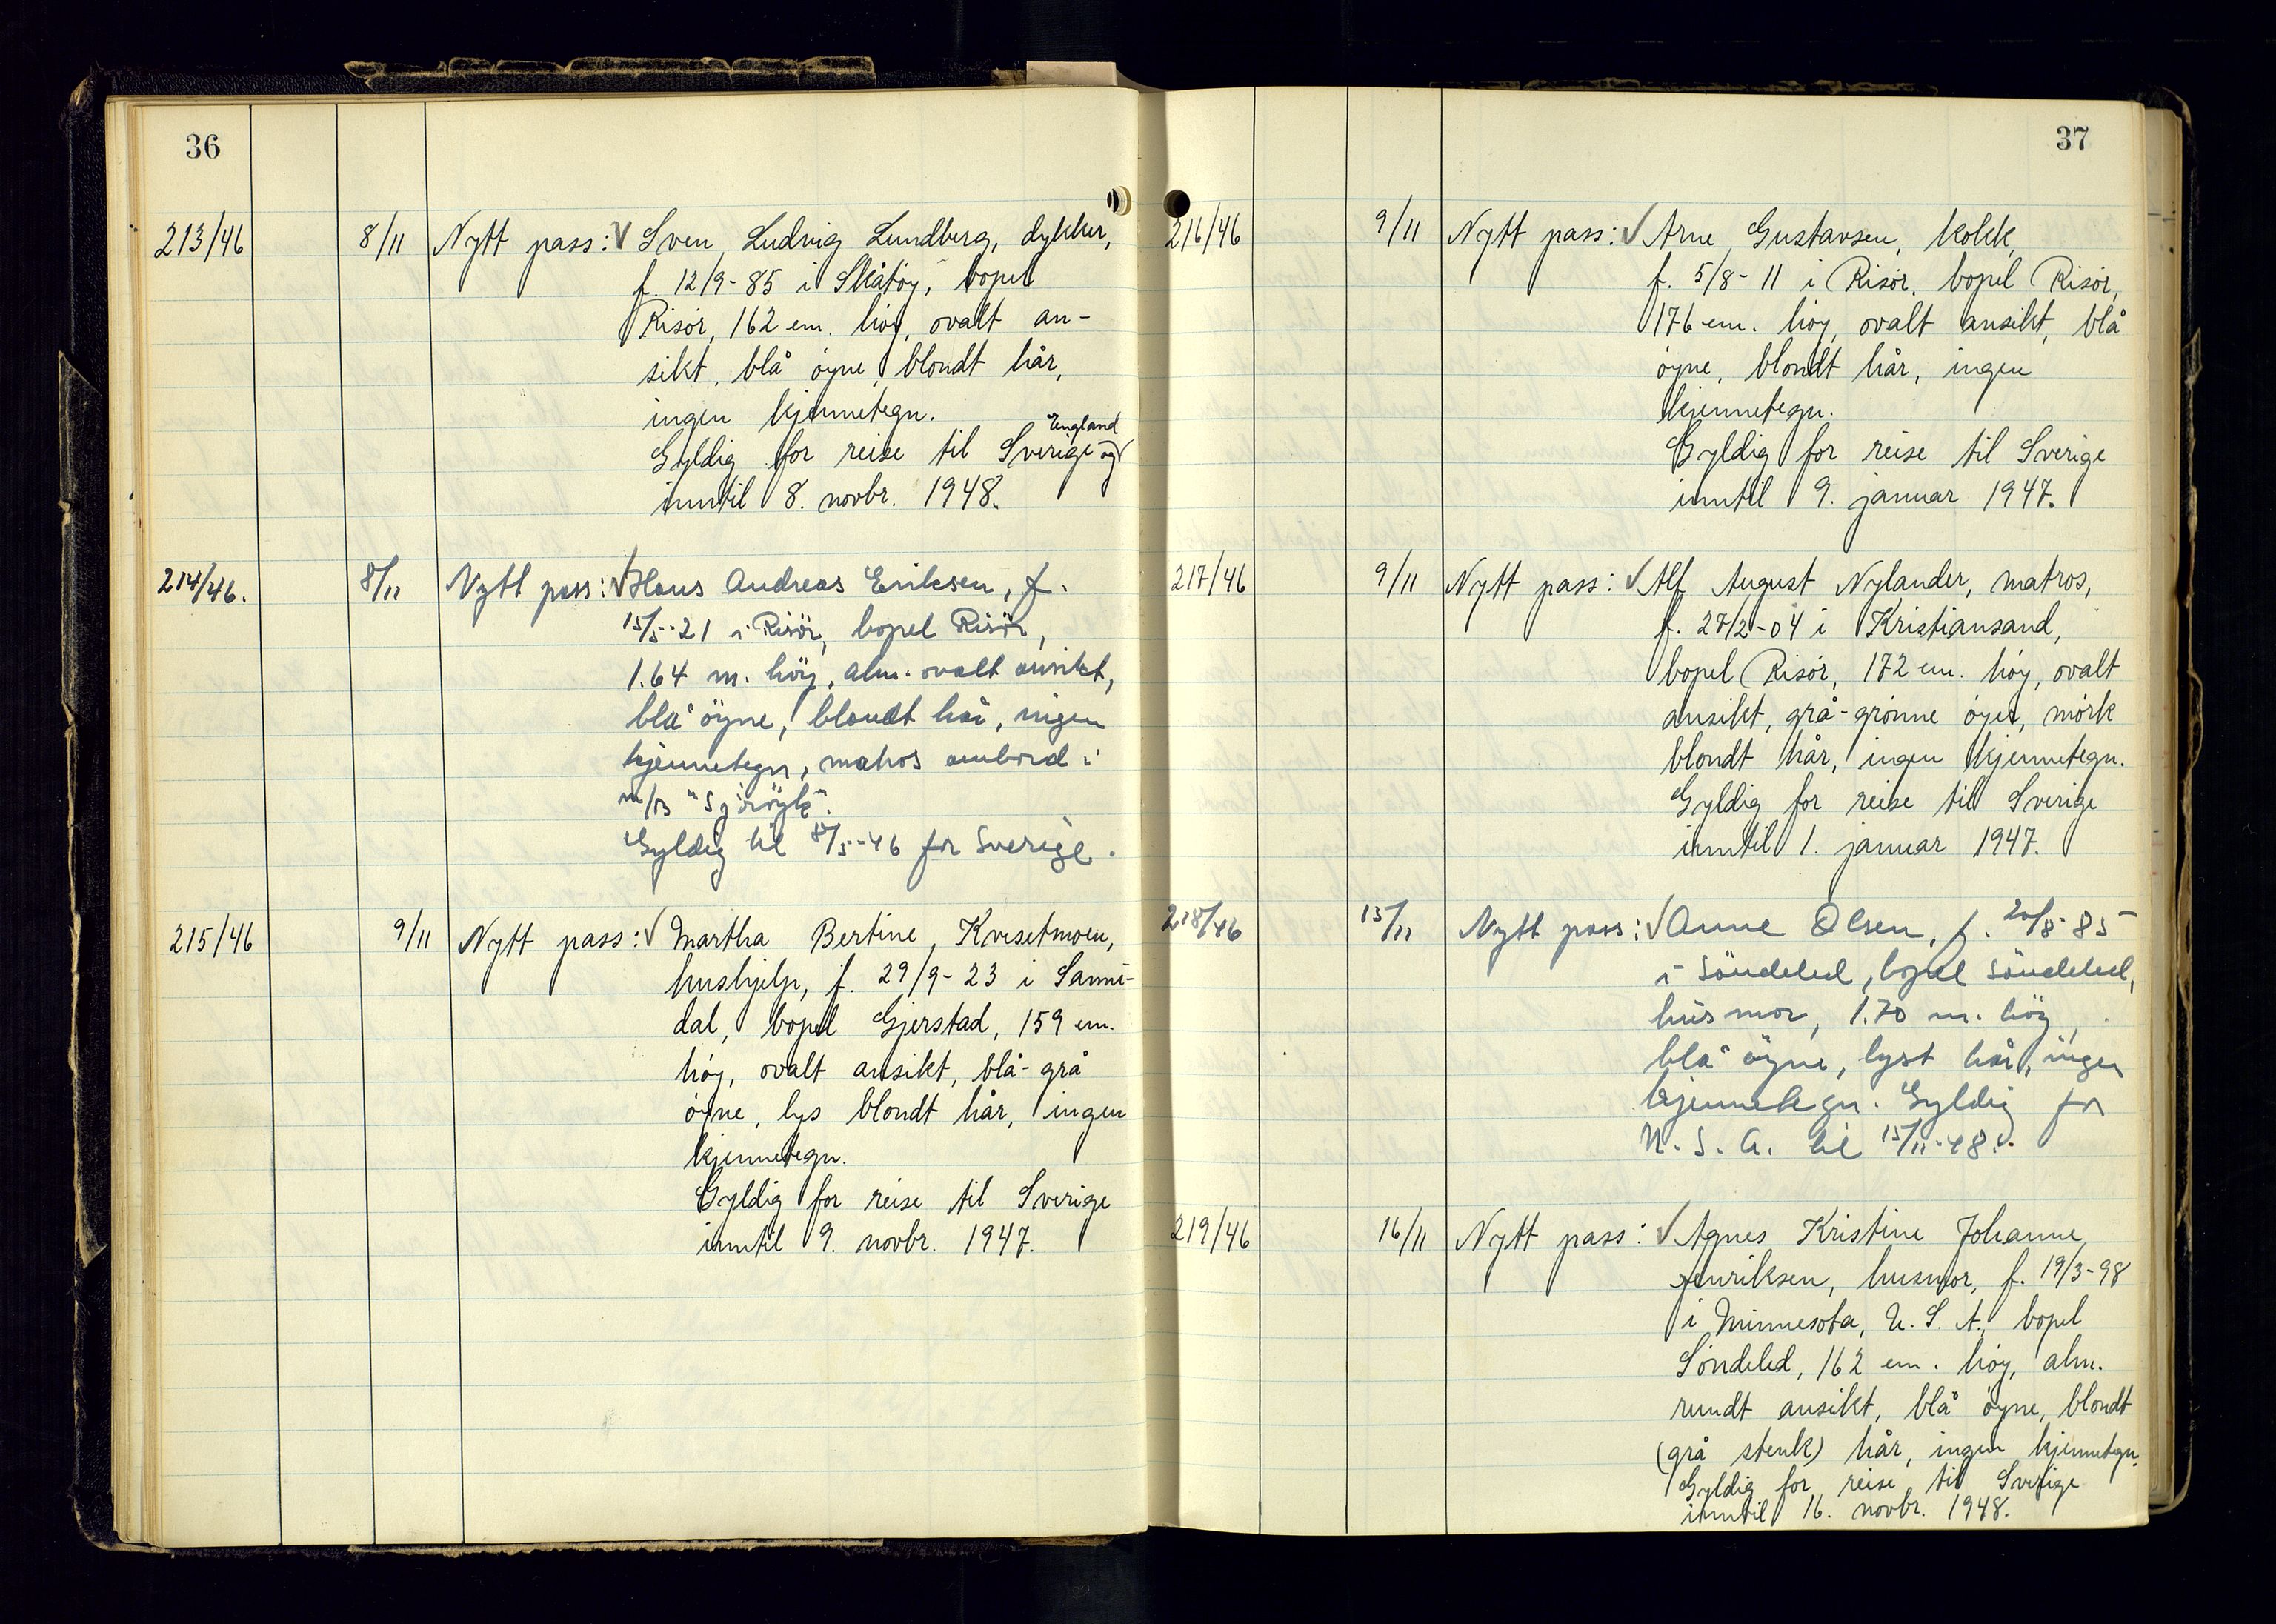 36
213/46 8/11 Nytt pass: √ Sven Ludvig Lundberg, dykker,
f. 12/9-85 i Skåtøy, bopel
Risør, 162 cm. høy, ovalt an-
sikt, blå øyne, blondt hår,
ingen kjennetegn.
England
Gyldig for reise til Sverige og
inntil 8. novbr. 1948.
214/46. 8/11 Nytt pass: √ Hans Andreas Eriksen, f.
15/5-21 i Risör, bopel Risör,
1.64 m. höy, alm. ovalt ansikt,
blå öyne, blondt hår, ingen
kjennetegn, matros ombord i
m/B "Sjöröyk".
Gyldig til /5-46 for Sverige.
215/46 9/11 Nytt pass: √ Martha Bertine, Kvesetmoen,
hushjelp, f. 29/9-23 i Sanni-
dal, bopel Gjerstad, 159 cm.
høy, ovalt ansikt, blå-grå
øyne, lys blondt hår, ingen
kjennetegn.
Gyldig for reise til Sverige
inntil 9. novbr. 1947.
37
216/46 9/11 Nytt pass: √ Arne Gustavsen, kokk,
f. 5/8-11 i Risør, bopel Risør,
176 cm. høy, ovalt ansikt, blå
øyne, blondt hår, ingen
kjennetegn.
Gyldig for reise til Sverige
inntil 9. januar 1947.
217/46 9/11 Nytt pass: √ Alf August Nylander, matros,
f. 27/2-04 i Kristiansand,
bopel Risør, 172 cm. høy, ovalt
ansikt, grå-grønne øyer, mørk
blondt hår, ingen kjennetegn.
Gyldig for reise til Sverige
inntil 1. januar 1947.
218/46 15/11 Nytt pass: √ Anne Olsen, f. 20/8-85
i Söndeled, bopel Söndeled,
husmor, 1.70 m. höy,
blå öyne, lyst hår, ingen
kjennetegn. Gyldig for
U.S.A. til 15/11-48.
219/46 16/11 Nytt pass: √ Agnes Kristine Johanne
Henriksen, husmor, f. 19/3-98
i Minnesota, U.S.A., bopel
Søndeled, 162 cm. høy, alm.
rundt ansikt, blå øyne, blondt
(grå stenk) hår, ingen kjennetegn.
Gyldig for reise til Sverige
inntil 16. novbr. 1948.